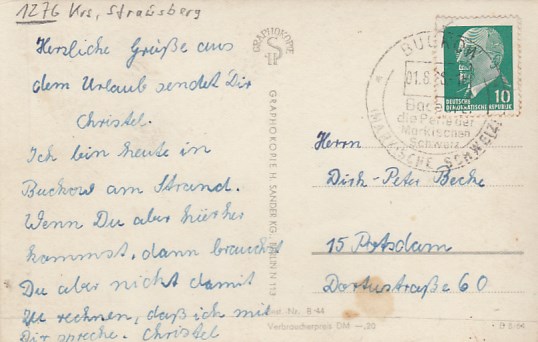 1276 Krs. Strausberg
Herzliche Grüße aus
dem Urlaub sendet Dir
Christel.
Ich bin heute in
Buckow am Strand.
Wenn Du aber hierher
kommst, dann brauchst
Du aber nicht damit
zu rechnen, daß ich mit
Dir spreche. Christel
GRAPHOKOPIE
GRAPHOKOPIE H. SANDER KG, BERLIN N 113
Best. Nr. B 44
Verbraucherpreis DM —,20
BUCKOW
01.8.
die Perle der
Märkischen
Schweiz
(MÄRKISCHE SCHWEIZ)
DEUTSCHE
DEMOKRATISCHE REPUBLIK
10
Herrn
Dirk-Peter Becke
15 Potsdam
Dortustraße 60